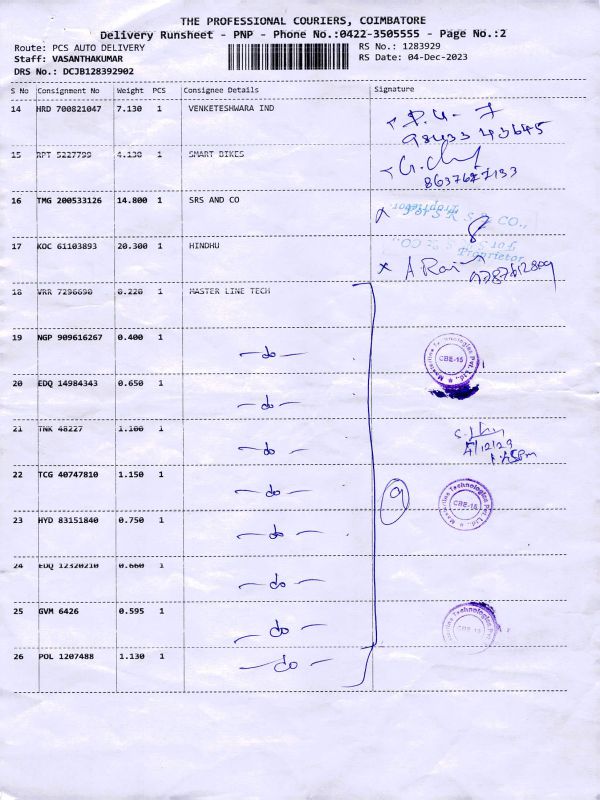 THE PROFESSIONAL COURIERS, COIMBATORE
Delivery Runsheet - PNP - Phone No.:0422-3505555 - Page No.:2
Route: PCS AUTO DELIVERY
RS No.: 1283929
Staff: VASANTHAKUMAR
RS Date: 04-Dec-2023
DRS No.: DCJB128392902
S No Consignment No Weight PCS Consignee Details Signature
14 HRD 700821047 7.130 1 VENKETESHWARA IND
15 RPT 5227799 4.130 1 SMART BIKES
16 TMG 200533126 14.800 1 SRS AND CO
17 KOC 61103893 20.300 1 HINDHU
18 VRR 7296690 0.220 1 MASTER LINE TECH
19 NGP 909616267 0.400 1 - do -
CBE-15
20 EDQ 14984343 0.650 1 - do -
21 TNK 48227 1.100 1 - do -
4/12/23
22 TCG 40747810 1.150 1 - do -
9
CBE-15
23 HYD 83151840 0.750 1 - do -
24 EDQ 12320210 0.660 1 - do -
25 GVM 6426 0.595 1 - do -
CBE-15
26 POL 1207488 1.130 1 - do -